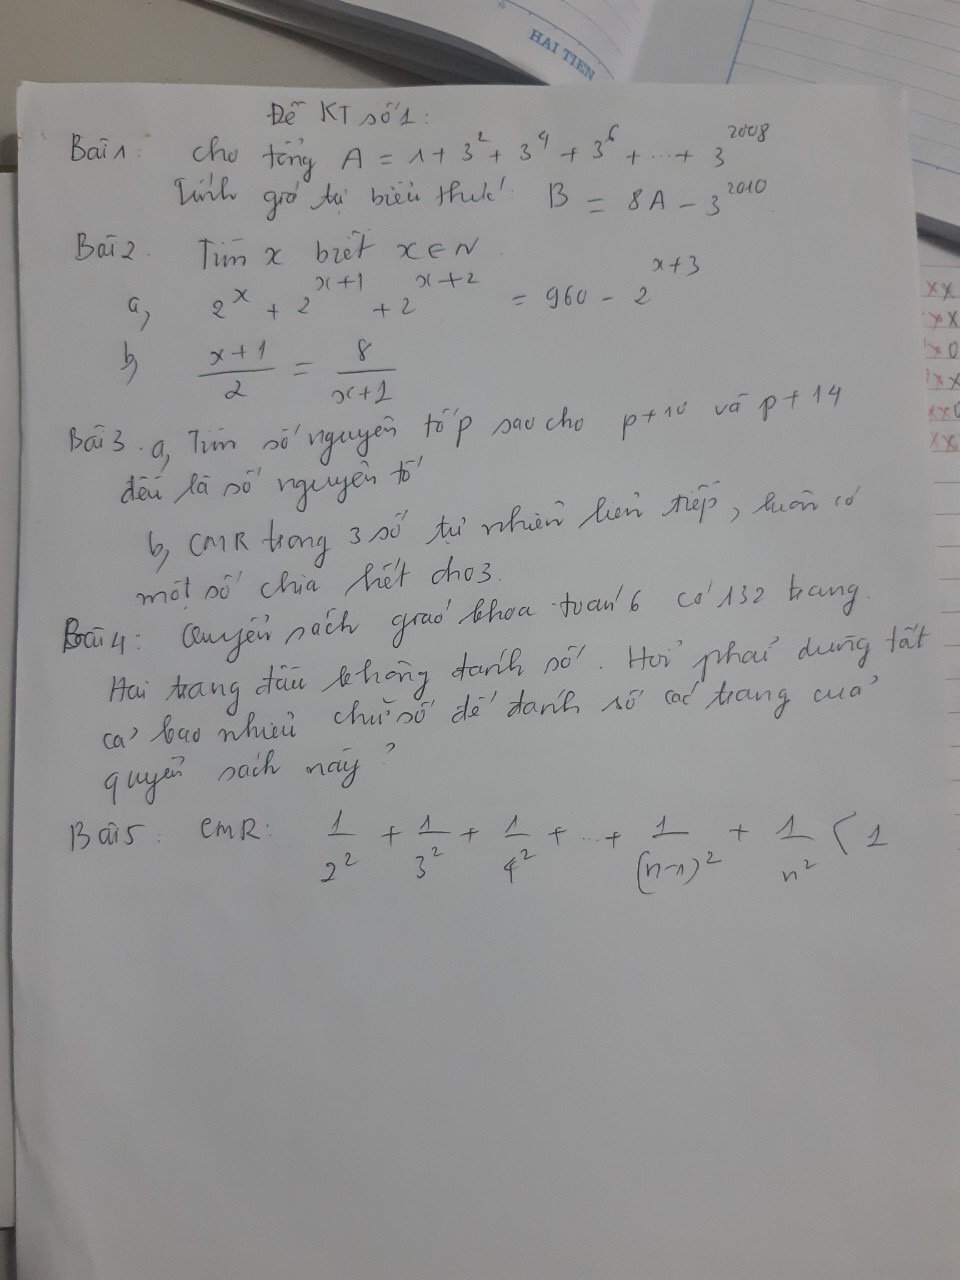 HAI TIEN
Đề KT số 1:
Bài 1: Cho tổng A = 1 + 3² + 3⁴ + 3⁶ + ... + 3²⁰⁰⁸
Tính giá trị biểu thức: B = 8A - 3²⁰¹⁰
Bài 2. Tìm x biết x ∈ N
a, 2^x + 2^(x+1) + 2^(x+2) = 960 - 2^(x+3)
b, (x+1)/2 = 8/(x+1)
Bài 3. a, Tìm số nguyên tố p sao cho p+10 và p+14
đều là số nguyên tố
b, CMR trong 3 số tự nhiên liên tiếp, luôn có
một số chia hết cho 3.
Bài 4: Quyển sách giáo khoa toán 6 có 132 trang.
Hai trang đầu không đánh số. Hỏi phải dùng tất
cả bao nhiêu chữ số để đánh số các trang của
quyển sách này?
Bài 5: CMR: 1/2² + 1/3² + 1/4² + ... + 1/(n-1)² + 1/n² < 1